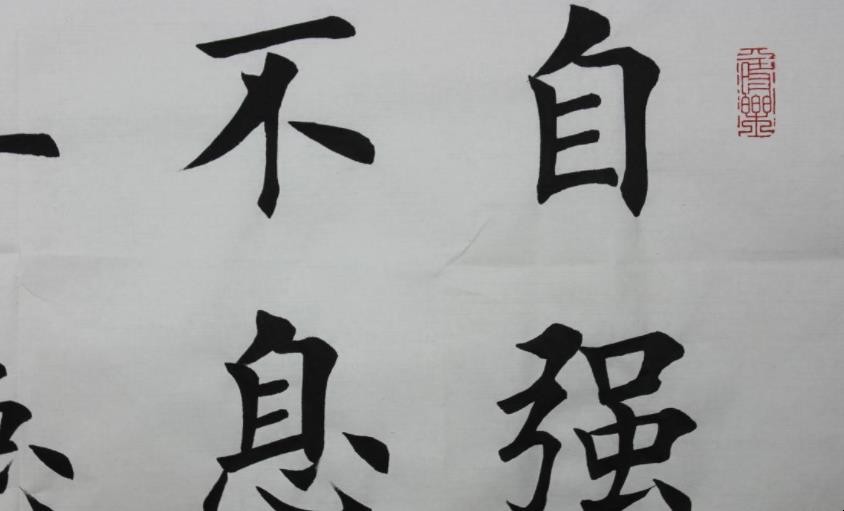 自强
不息